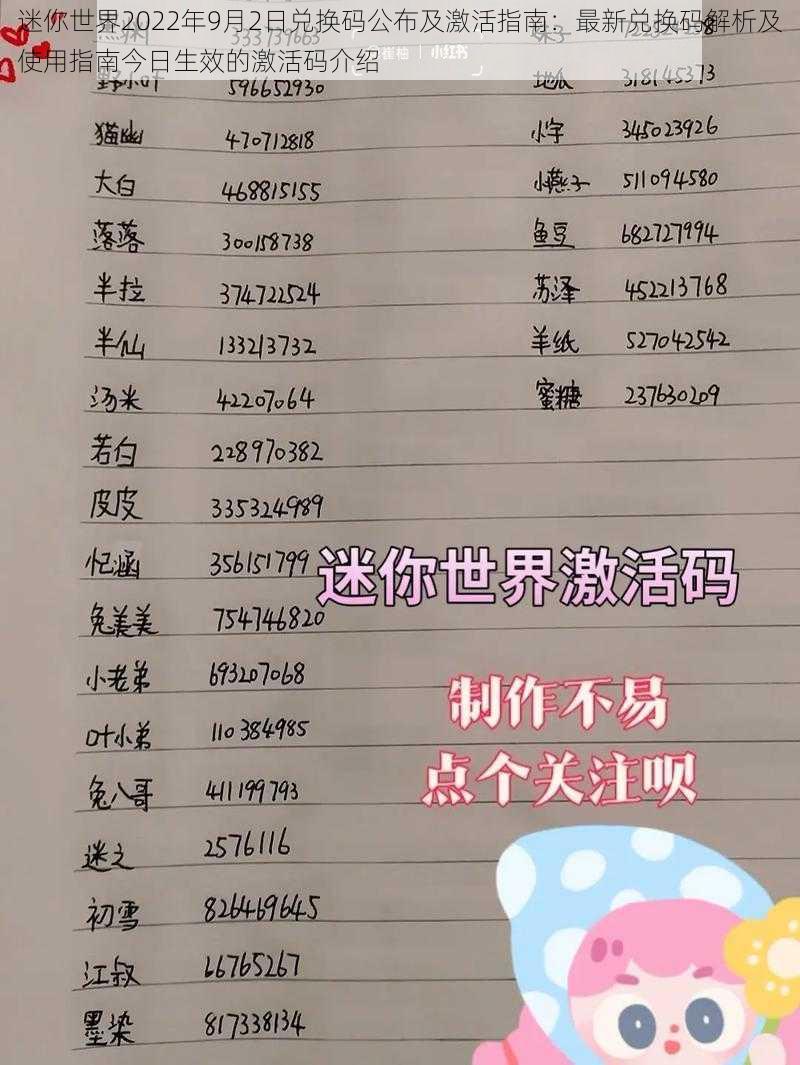 迷你世界2022年9月2日兑换码公布及激活指南：最新兑换码解析及
使用指南今日生效的激活码介绍
小红书
野小叶 596652930
猫幽 470712818
大白 468815155
落落 300158738
半拉 374722524
半仙 133213732
汤米 42207064
若白 228970382
皮皮 335324989
忆涵 356151799
兔美美 754746820
小老弟 693207068
叶小弟 110384985
兔八哥 411199793
迷之 2576116
初雪 826469645
江叔 66765267
墨染 817338134
地瓜 318145373
小字 345023926
小燕子 511094580
鱼豆 682727994
苏泽 452213768
羊纸 527042542
蜜糖 237630209
迷你世界激活码
制作不易
点个关注呗